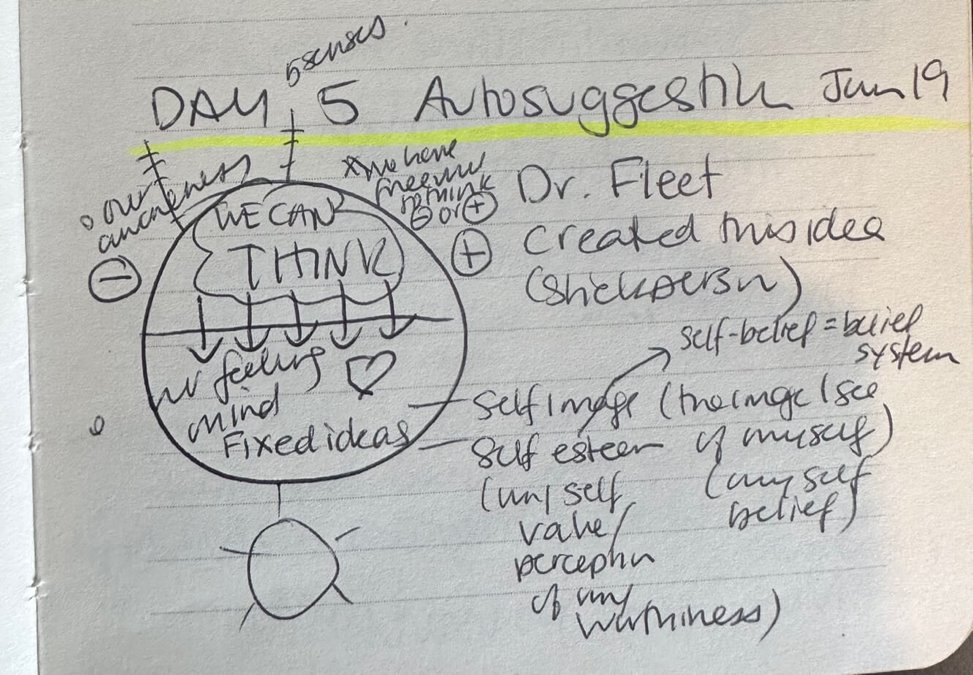 5 senses.
DAY 5 Autosuggestion Jun 19
our awareness
* we have
free will
to think
⊖ or ⊕
⊖
⊕
WE CAN
THINK
feeling
mind
♡
Fixed ideas
Dr. Fleet
created this idea
(stickperson)
self-belief = belief
system
self image (the image I see
of myself)
(my self
belief)
self esteem
(my self
value/
perception
of my
worthiness)